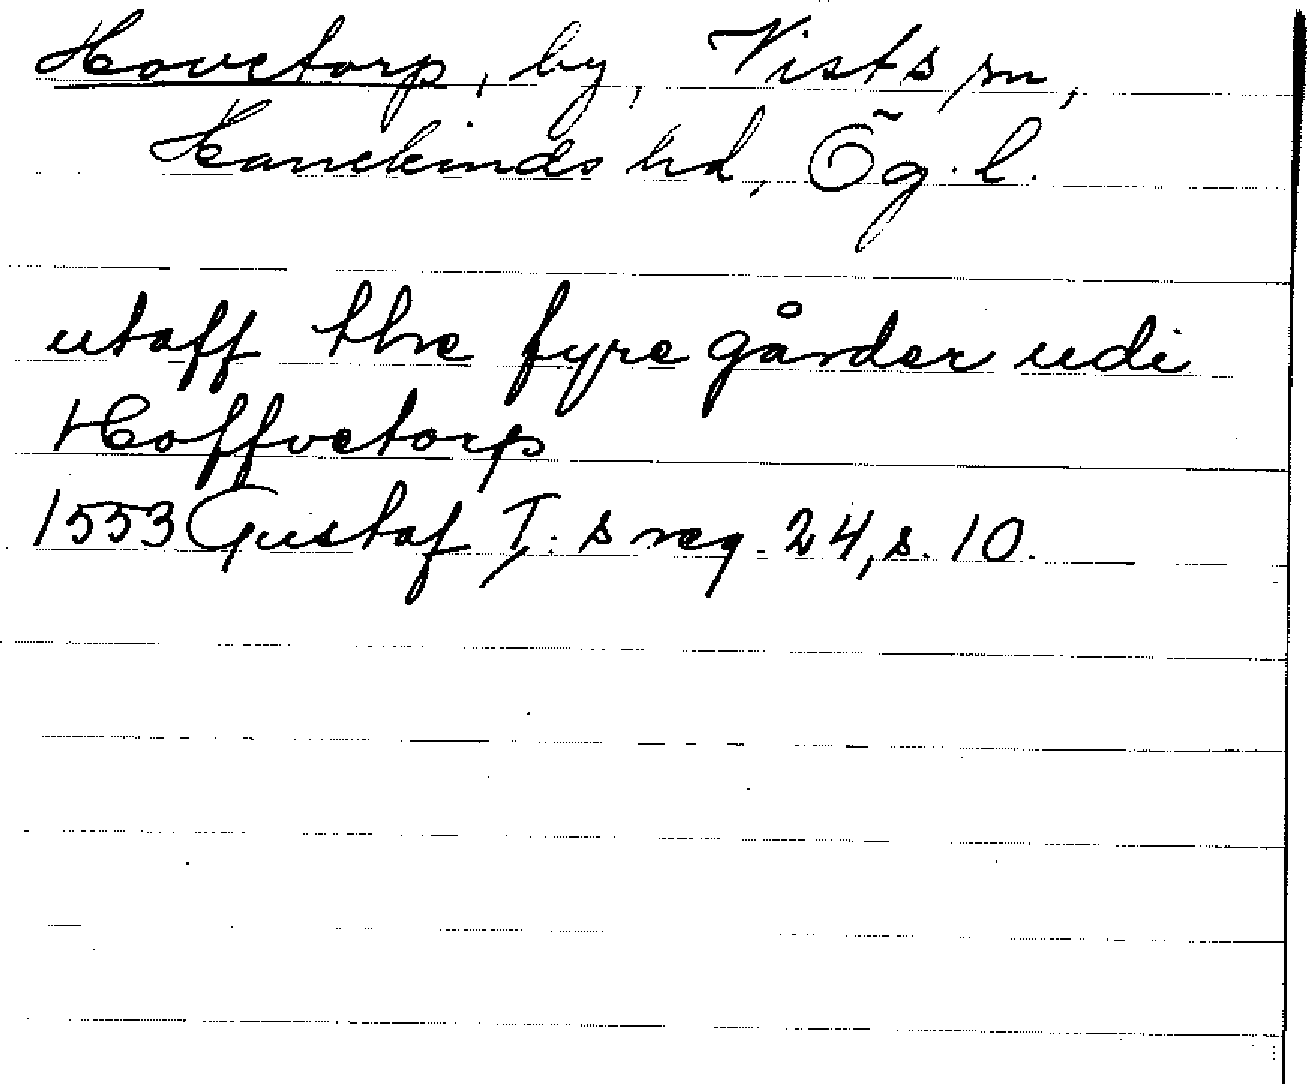 Hovetorp, by, Vists sn,
Hanekinds hd, Ög. l.
utaff the fyre gårder udi
Hoffvetorp
1553 Gustaf I:s reg. 24, s. 10.